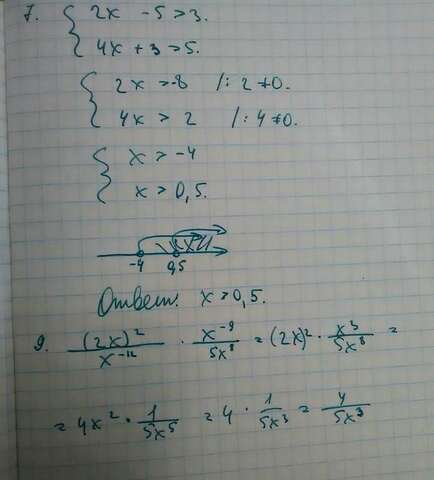 7. { 2x - 5 > 3.
4x + 3 > 5.
{ 2x > -8 /: 2 ≠ 0.
4x > 2 /: 4 ≠ 0.
{ x > -4
x > 0,5.
-4 0,5
Ответ: x > 0,5.
9. (2x)² / x⁻¹² · x⁻⁹ / 5x⁸ = (2x)² · x³ / 5x⁸ =
= 4x² · 1 / 5x⁵ = 4 · 1 / 5x³ = 4 / 5x³